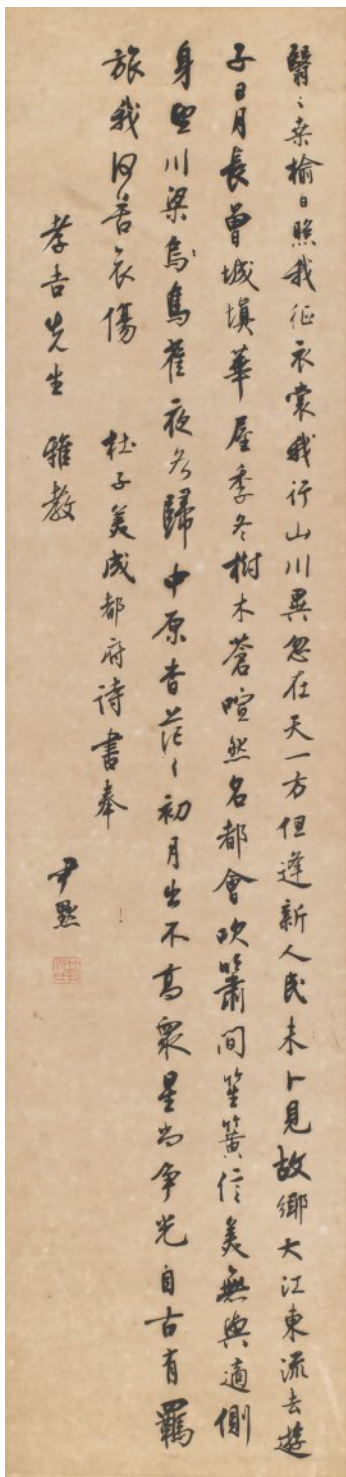 翳〻桒榆日照我征衣裳我行山川異忽在天一方但逢新人民未卜見故鄉大江東流去遊
子日月長曾城填華屋季冬樹木蒼喧然名都會吹簫間笙簧信美無與適側
身望川梁鳥雀夜各歸中原杳茫〻初月出不高衆星尚爭光自古有羈
旅我何苦哀傷 杜子美成都府詩書奉
孝吉先生 雅教 尹默